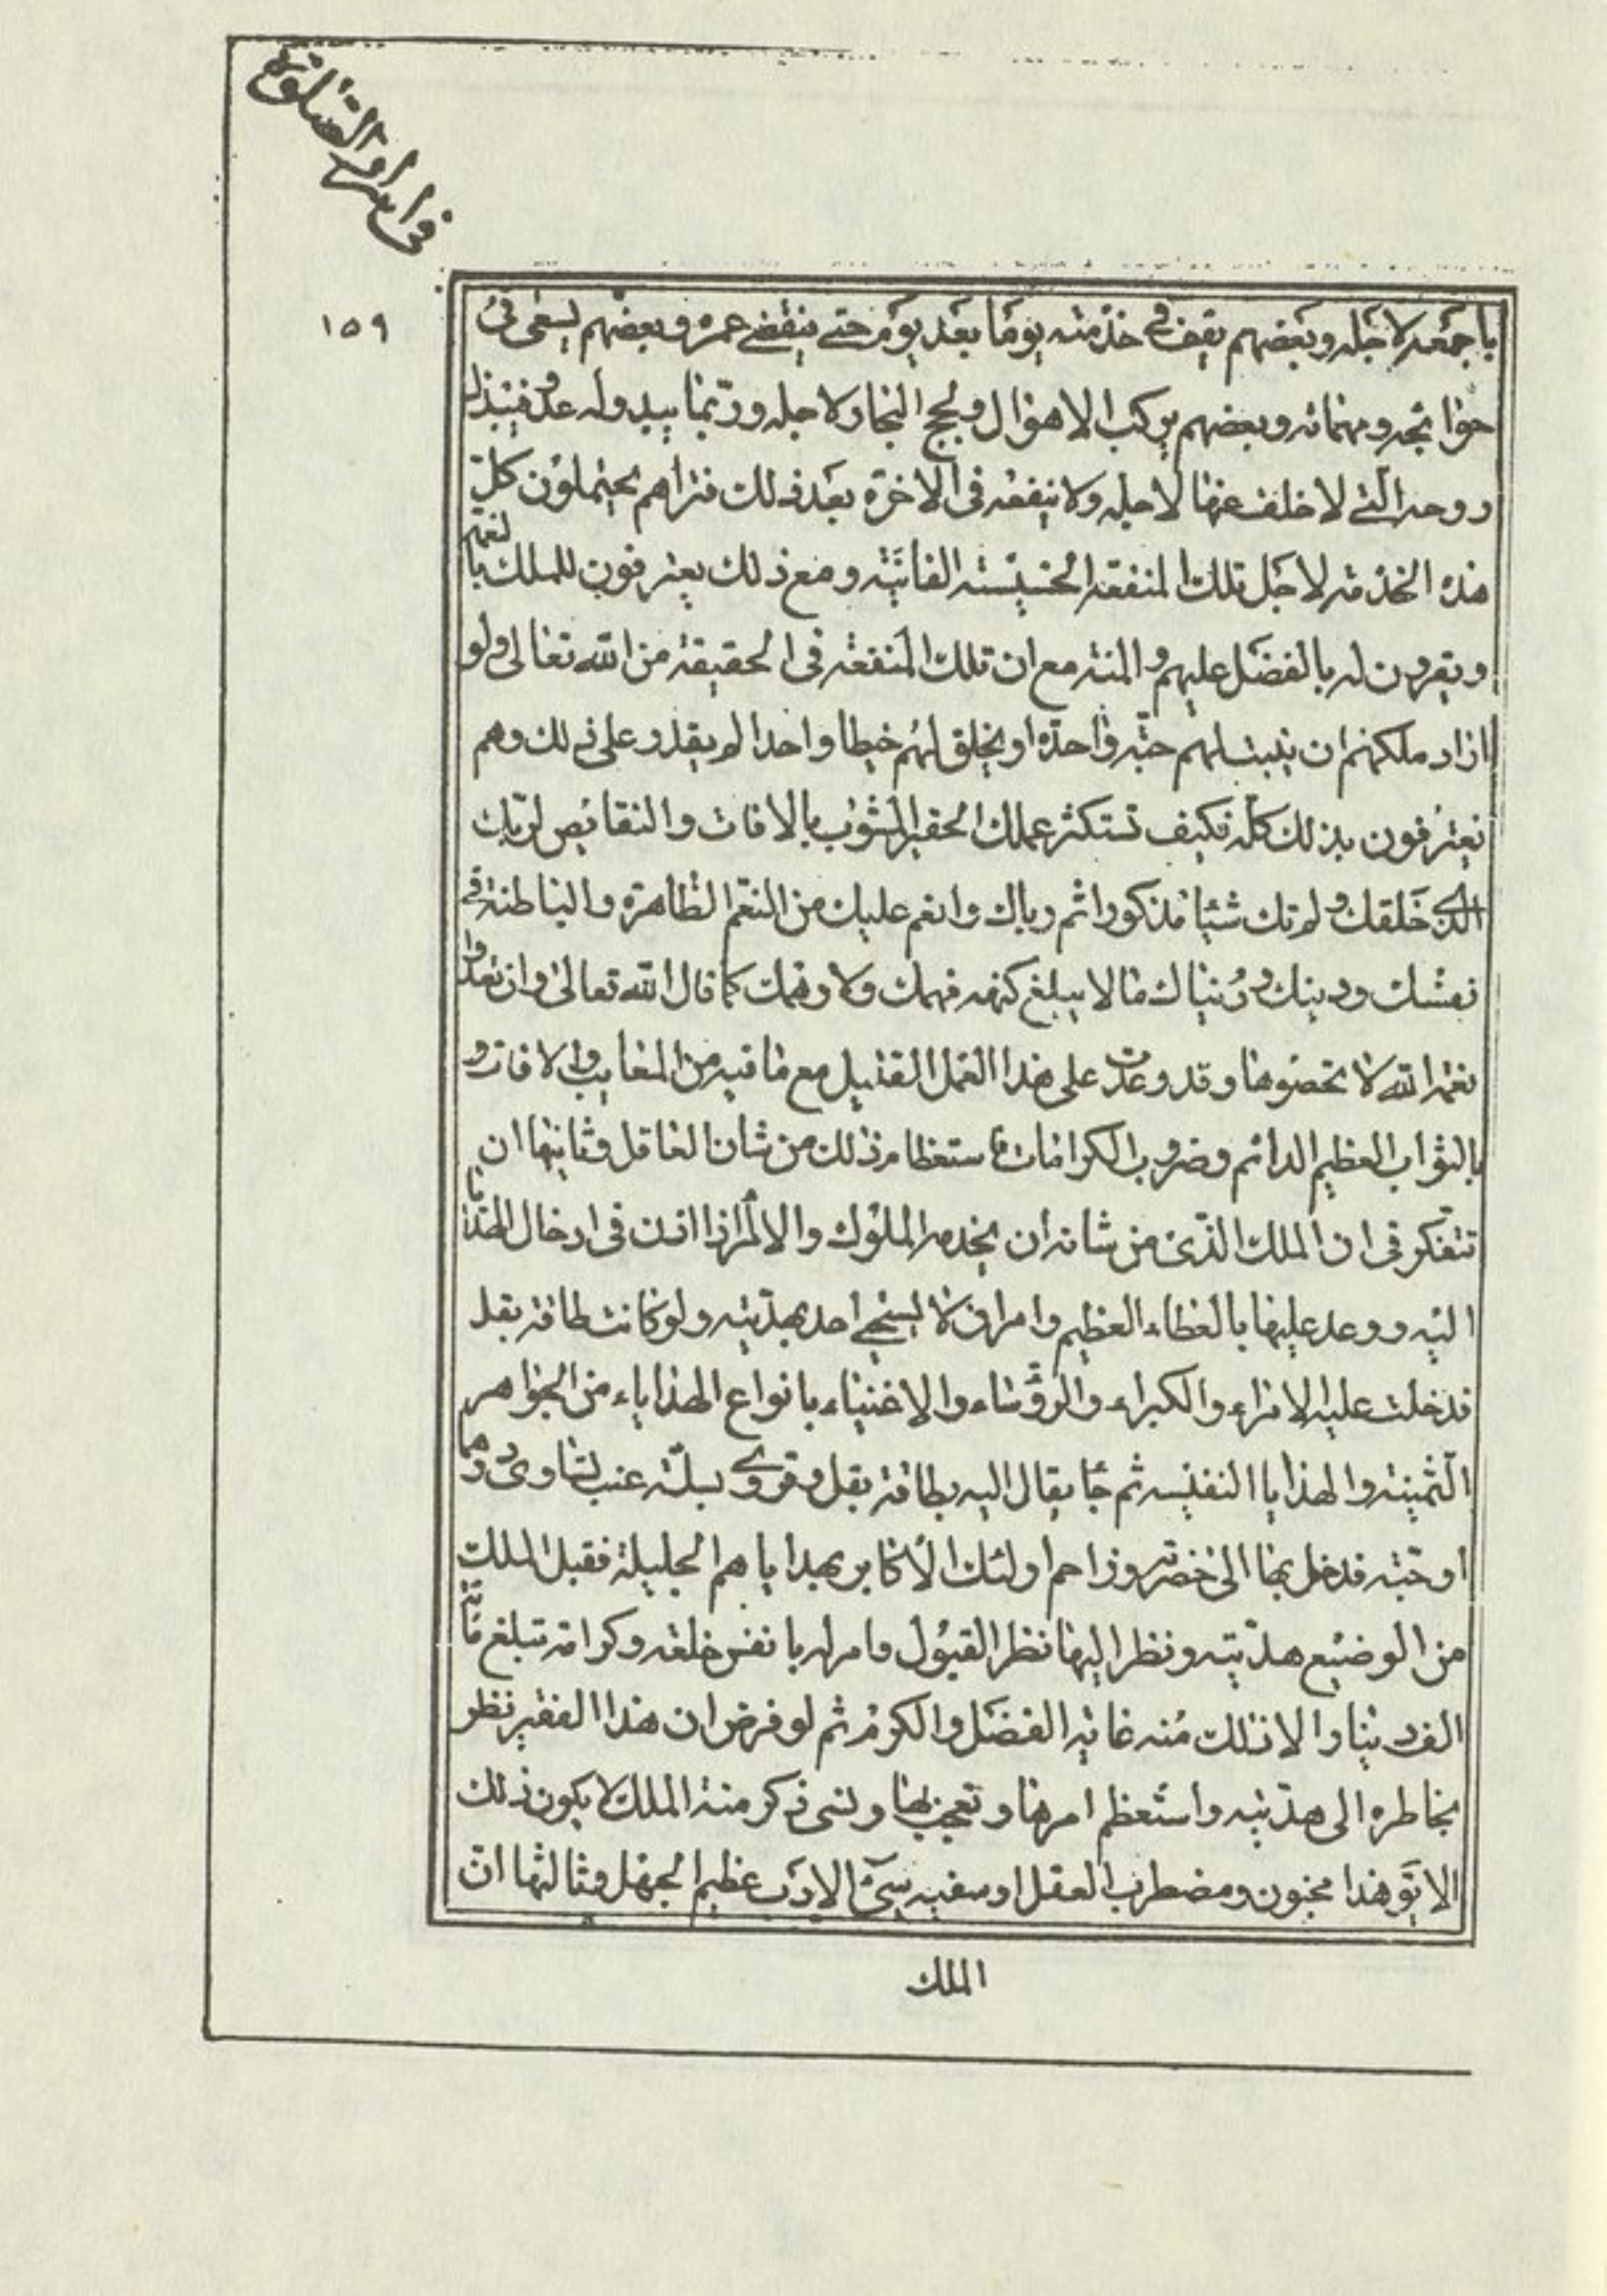 في اسرار الصلوة
١٥٩
باجمعه لاجله وبعضهم يقف في خدمته يوما بعد يوم حتى ينقضي عمره وبعضهم يسعى في
حوائجه ومهماته وبعضهم يركب الاهوال ولجج البحار لاجله وربما يبيد وله عدو فيبذل
روحه التي لا خلف عنها لاجله ولا ينفعه في الاخرة بعد ذلك فتراهم يحتملون كل
هذه الخدمة لاجل تلك المنفعة الخسيسة الفانية ومع ذلك يعترفون للملك بالنعم
ويقرون له بالفضل عليهم والمنة مع ان تلك المنفعة في الحقيقة من الله تعالى ولو
اراد ملكهم ان ينبت لهم حبة واحدة او يخلق لهم خيطا واحدا لم يقدر على ذلك وهم
يعترفون بذلك كله فكيف تستكثر عملك الحقير المشوب بالافات والنقايص لربك
الذي خلقك ولم تك شيئا مذكورا ثم رباك وانعم عليك من النعم الظاهرة والباطنة في
نفسك ودينك ودنياك ما لا يبلغ كنهه فهمك ولا وهمك كما قال الله تعالى وان تعدوا
نعمة الله لا تحصوها وقد وعدت على هذا العمل القليل مع ما فيه من المعايب والافات و
بالثواب العظيم الدائم وضروب الكرامات ما ستعظام ذلك من شان العاقل وثانيها ان
تتفكر في ان الملك الذي من شانه ان يخدمه الملوك والامراء اذا اذن في ادخال الهدايا
اليه ووعد عليها بالعطاء العظيم وامر ان لا يستحي احد بهديته ولو كانت طاقة بقل
فدخلت عليه الامراء والكبراء والرؤساء والاغنياء بانواع الهدايا من الجواهر
الثمينة والهدايا النفيسه ثم جا بقال اليه بطاقة بقل وقروي بسلة عنب تساوي درهما
او حبة فدخل بها الى حضرته وزاحم اولئك الاكابر بهداياهم الجليلة فقبل الملك
من الوضيع هديته ونظر اليها نظر القبول وامر له بانفس خلعة وكرامة تبلغ مائة
الف دينار الا ذلك منه غاية الفضل والكرم ثم لو فرض ان هذا الفقير نظر
بخاطره الى هديته واستعظم امرها وتعجب بها ونسى ذكر منة الملك لا يكون ذلك
الا يق هذا مجنون ومضطرب العقل او سفيه سئ الادب عظيم الجهل وثالثها ان
الملك